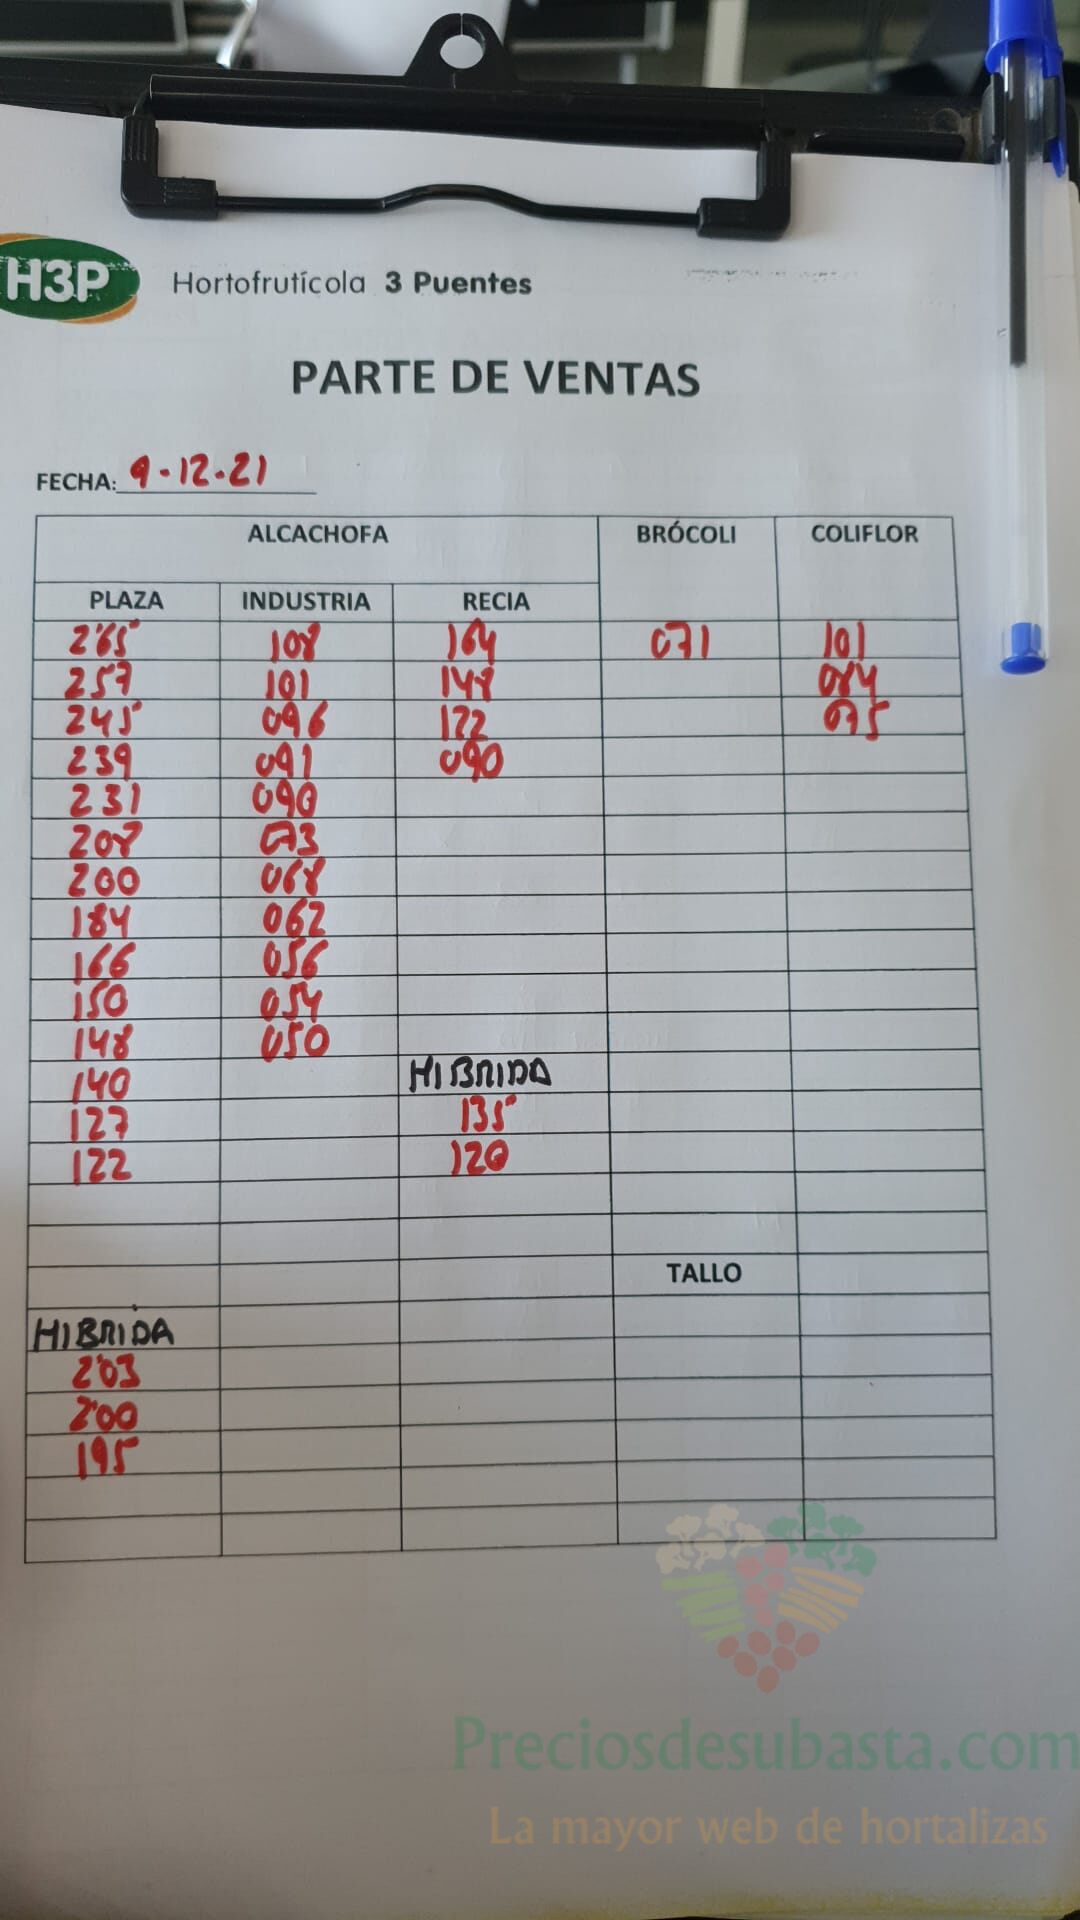 H3P Hortofrutícola 3 Puentes
PARTE DE VENTAS
FECHA: 9-12-21
ALCACHOFA BRÓCOLI COLIFLOR
PLAZA INDUSTRIA RECIA
2'65 108 164 071 101
257 101 148 084
245 096 122 075
239 091 090
231 090
208 073
200 068
184 062
166 056
150 054
148 050
140 HIBRIDA
127 135
122 120
TALLO
HIBRIDA
2'03
2'00
195
Preciosdesubasta.com
La mayor web de hortalizas